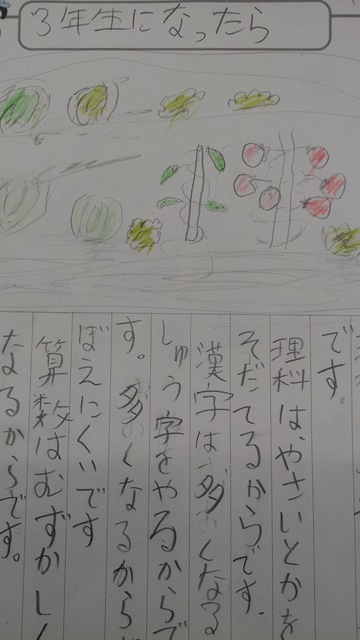 3年生になったら
です。
理科はやさいとかを
そだてるからです.
漢字は多くなる
しゅう字をやるからで
す。多くなるから
ぼえにくいです
算数はむずかしく
なるからです。